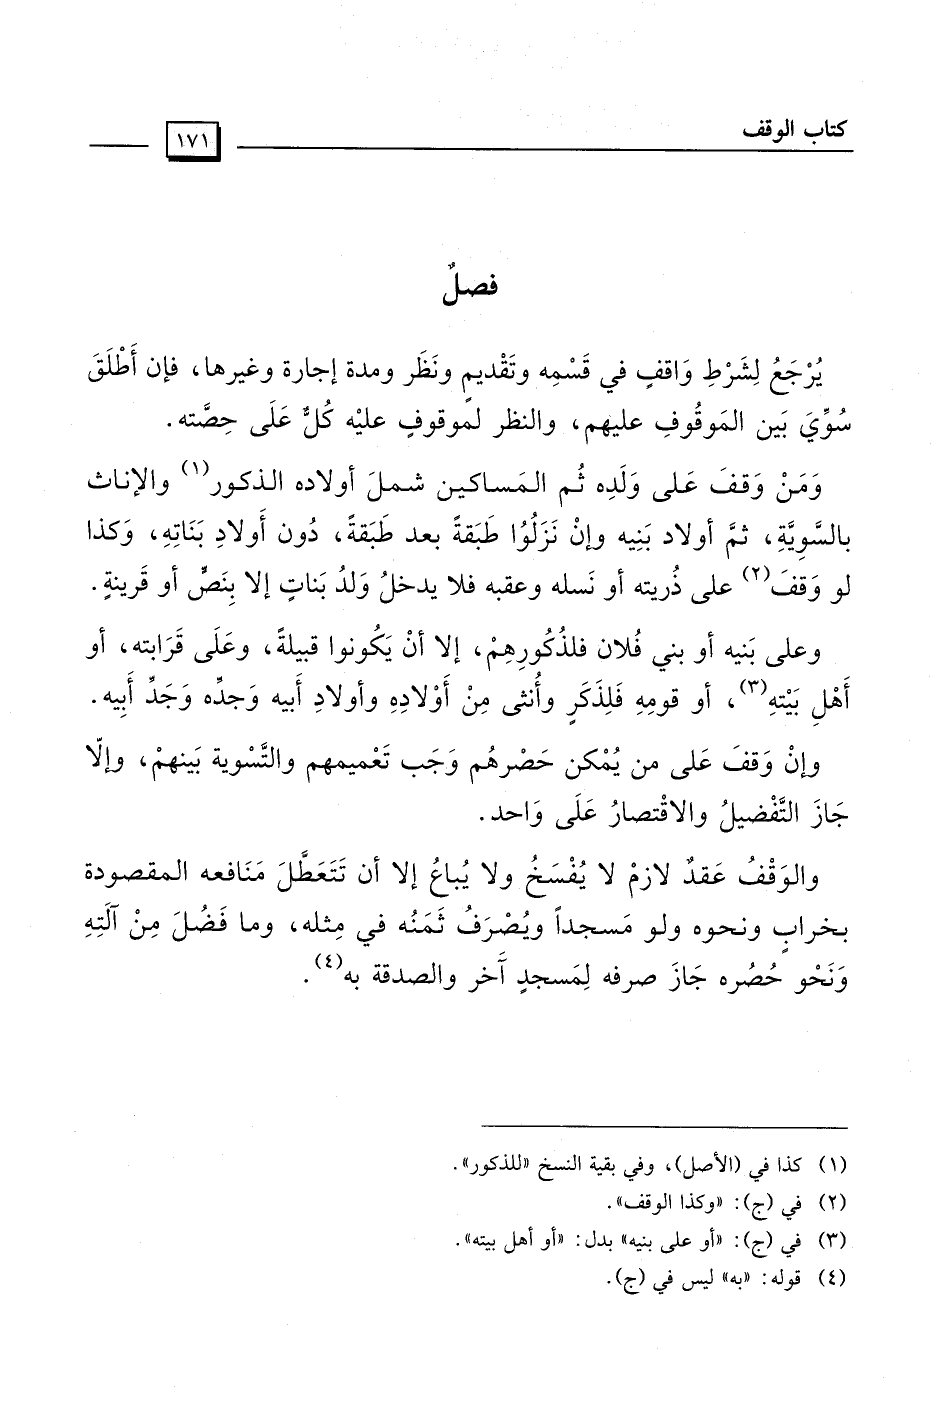 كتاب الوقف
١٧١
فصلٌ
يُرْجَعُ لِشَرْطِ وَاقفٍ في قَسْمِه وتَقْديمٍ ونَظَر ومدة إجارة وغيرها، فإن أَطْلَقَ
سُوِّيَ بَين المَوقُوفِ عليهم، والنظر لموقوفٍ عليْه كُلٌّ عَلَى حِصَّته.
وَمَنْ وَقفَ عَلى وَلَدِه ثُم المَساكين شملَ أولاده الذكور(١) والإناث
بالسَّويَّةِ، ثمَّ أولاد بَنِيه وإنْ نَزَلُوُا طَبَقةً بعد طَبَقةً، دُون أَولادِ بَنَاتِهِ، وَكذا
لو وَقفَ(٢) على ذُريته أو نَسله وعقبه فلا يدخلُ وَلدُ بَناتٍ إلا بِنَصٍّ أو قَرينةٍ.
وعلى بَنيه أو بني فُلان فلذُكُورِهِمْ، إلا أنْ يَكُونوا قبيلةً، وعَلَى قَرَابته، أو
أَهْلِ بَيْتهِ(٣)، أو قومِهِ فَلِذَكَرٍ وأُنثى مِنْ أَوْلادِهِ وأولادِ أبيه وَجدِّه وَجَدِّ أَبيه.
وإنْ وَقفَ عَلى من يُمْكن حَصْرهُم وَجَب تَعْميمهم والتَّسْوية بَينهمْ، وإلّا
جَازَ التَّفْضيلُ والاقْتصارُ عَلَى وَاحد.
والوَقْفُ عَقدٌ لازمْ لا يُفْسَخُ ولا يُباعُ إلا أن تَتَعَطَّلَ مَنَافعه المقصودة
بخرابٍ ونحوه ولو مَسجداً ويُصْرَفُ ثَمَنُه في مِثله، وما فَضُلَ مِنْ آلَتِهِ
وَنَحْو حُصُره جَازَ صرفه لِمَسجدٍ آخر والصدقة به(٤).
(١) كذا في (الأصل)، وفي بقية النسخ «للذكور».
(٢) في (ج): «وكذا الوقف».
(٣) في (ج): «أو على بنيه» بدل: «أو أهل بيته».
(٤) قوله: «به» ليس في (ج).